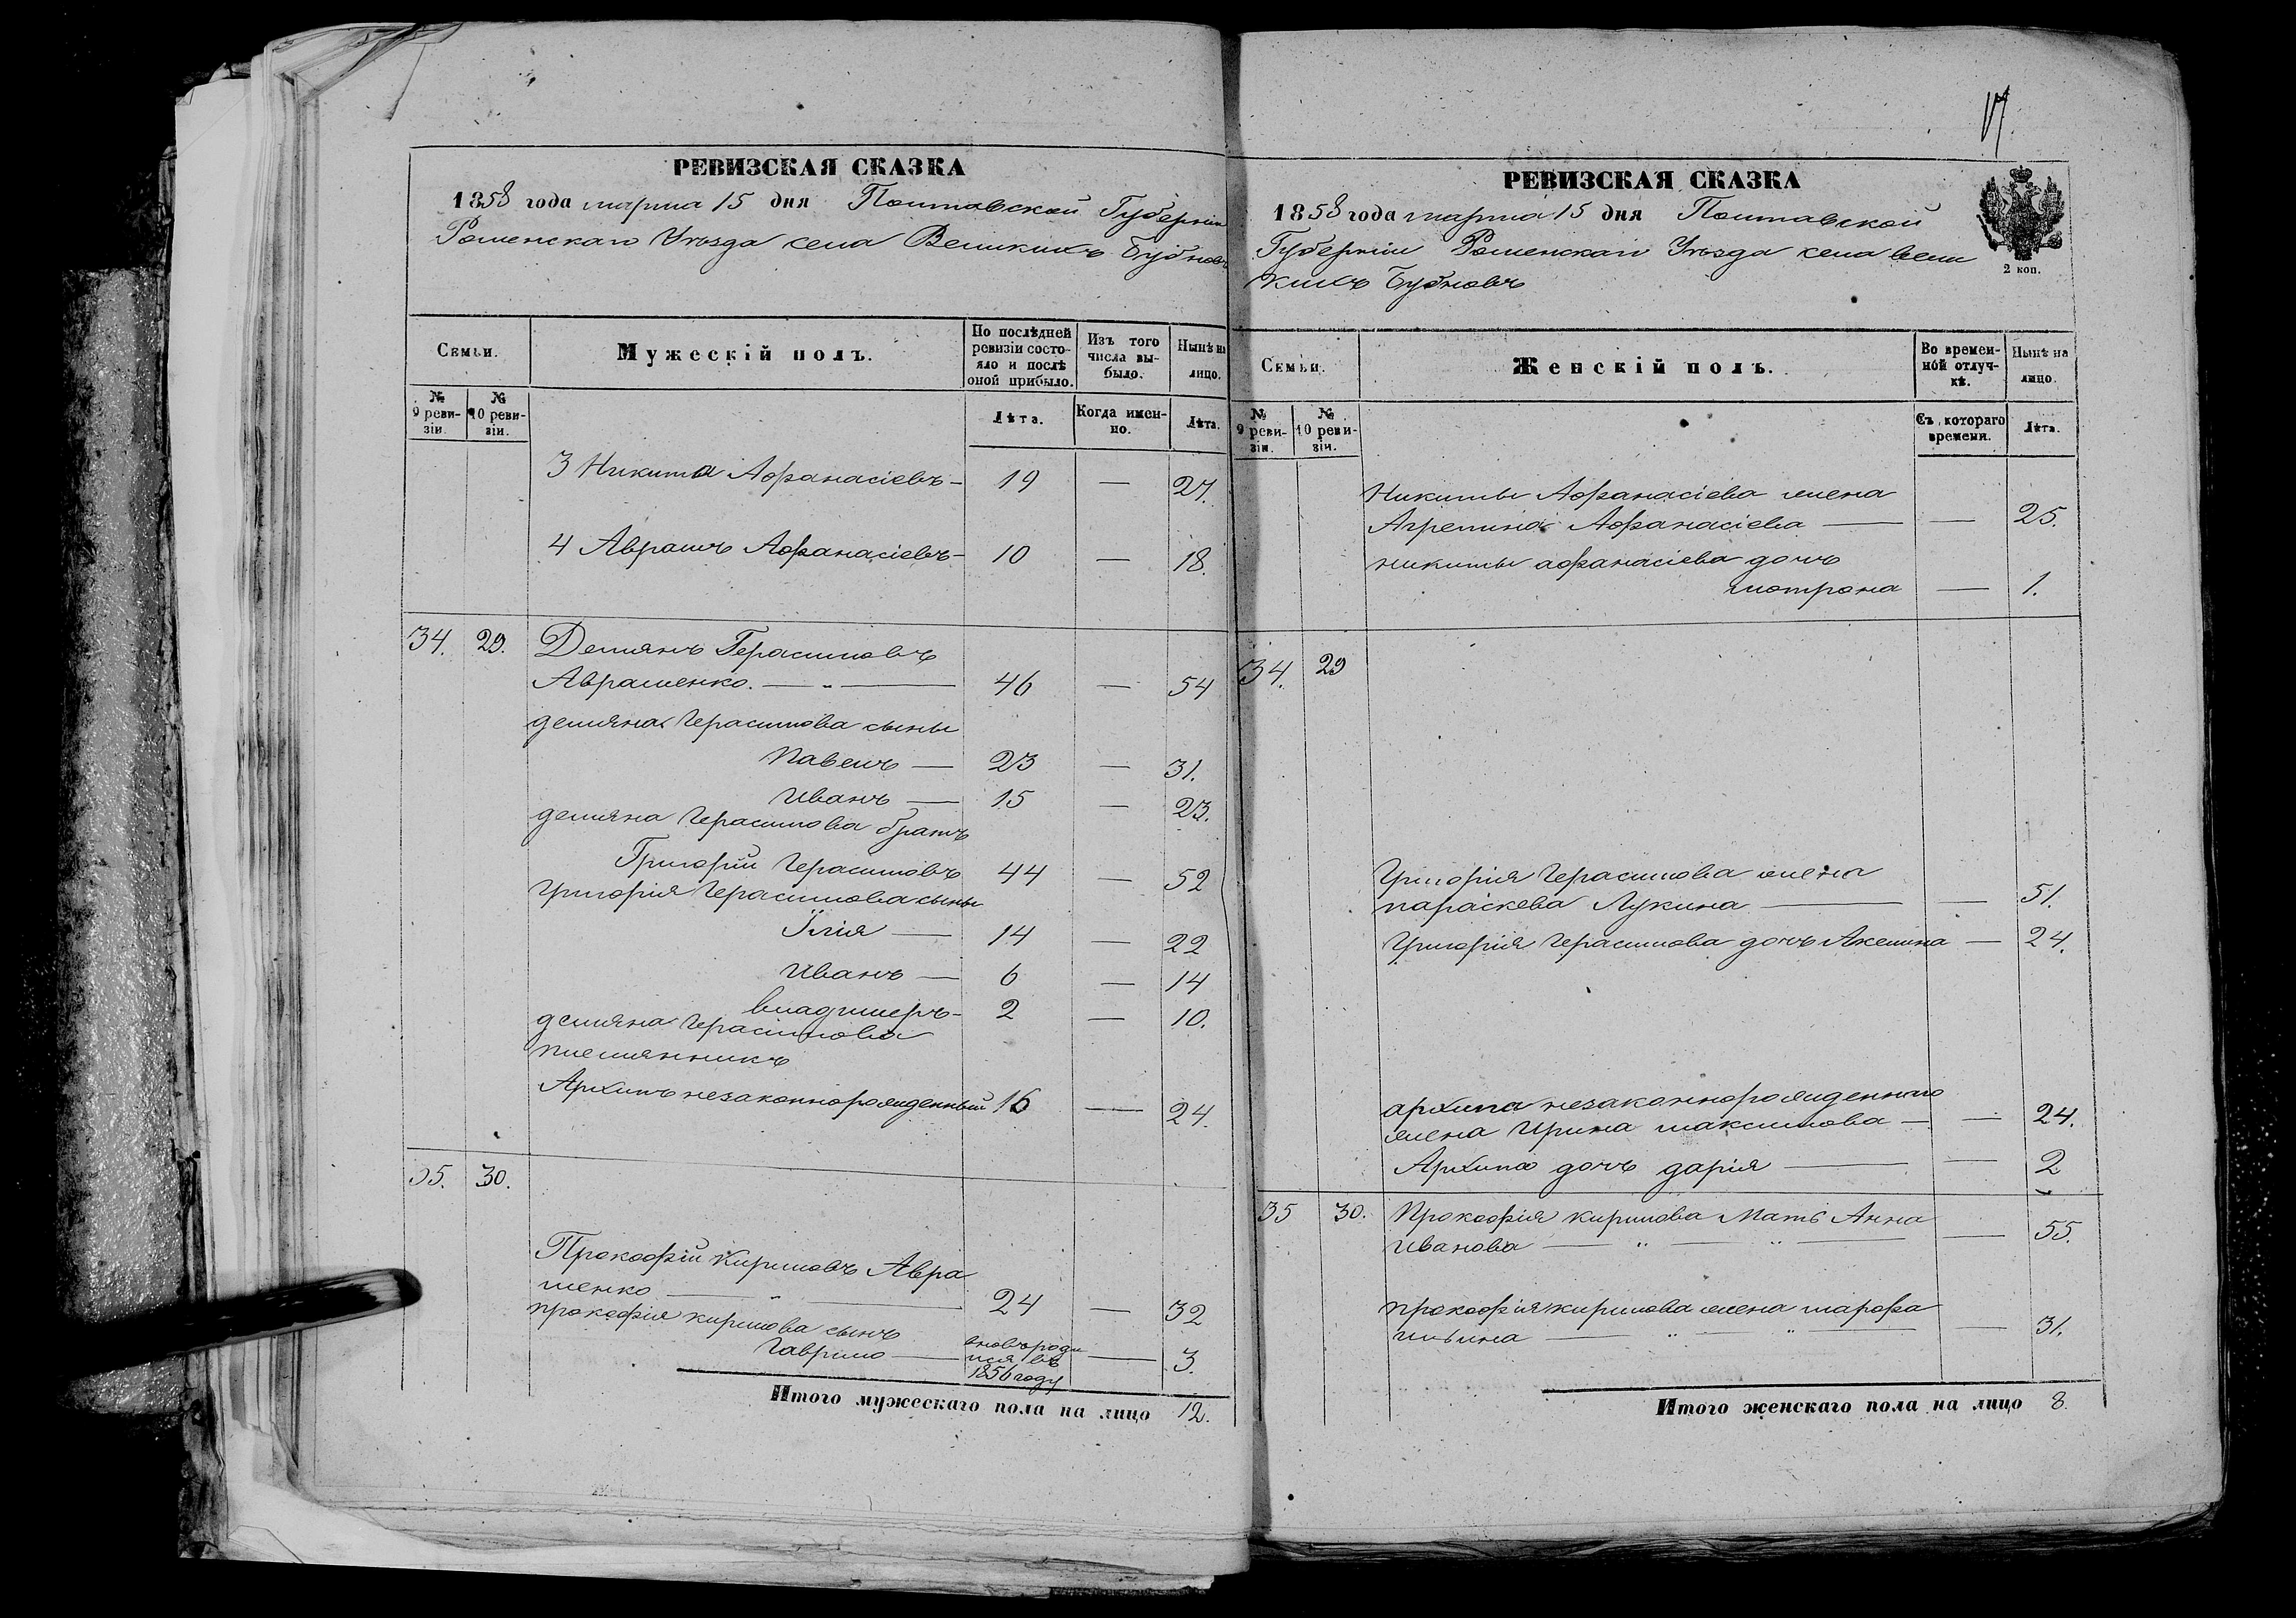 РЕВИЗСКАЯ СКАЗКА
1858 года марта 15 дня Полтавской Губерніи
Роменскаго Уѣзда села Великихъ Бубновъ
Семьи.
Мужескій полъ.
По послѣдней ревизіи состояло и послѣ оной прибыло.
Изъ того числа выбыло.
Нынѣ на лицо.
№ 9 ревизіи.
№ 10 ревизіи.
Лѣта.
Когда именно.
Лѣта.
3 Никита Афанасіевъ — 19 — 27.
4 Аврамъ Афанасіевъ — 10 — 18.
34. 29. Демянъ Герасимовъ
Авраменко. — „ — 46 — 54
демяна Герасимова сыны
Павелъ — 23 — 31.
Иванъ — 15 — 23.
демяна Герасимова братъ
Григорій Герасимовъ 44 — 52
Григорія Герасимова сыны
Илія — 14 — 22
Иванъ — 6 — 14
Владимеръ — 2 — 10.
демяна Герасимова
племянникъ
Архипъ незаконнорожденный 16 — 24.
35. 30.
Прокофій Кириловъ Авра
менко — „ — 24 — 32
прокофія кирилова сынъ
Гаврило — вновь роди
лся въ
1856 году — 3.
Итого мужескаго пола на лицо 12.
17.
РЕВИЗСКАЯ СКАЗКА
1858 года марта 15 дня Полтавской
Губерніи Роменскаго Уѣзда села вели
кихъ Бубновъ
2 коп.
Семьи.
Женскій полъ.
Во временной отлучкѣ.
Нынѣ на лицо.
№ 9 ревизіи.
№ 10 ревизіи.
Съ котораго времени.
Лѣта.
Никиты Афанасіева жена
Агрепина Афанасіева — — 25.
никиты афанасіева дочь
мотрона — 1.
34. 29
Григорія Герасимова жена
параскева Лукина — — 51.
Григорія Герасимова дочь Акелина — 24.
архипа незаконнорожденнаго
жена Ирина максимова — — 24.
Архипа дочь дарія — — 2
35 30. Прокофія кирилова Мать Анна
Иванова — „ — „ — — 55.
прокофія кирилова жена марфа
ильина — „ — „ — — 31.
Итого женскаго пола на лицо 8.